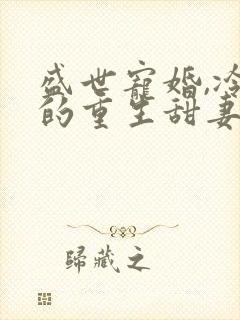 盛世寵婚,冷
的重生甜妻
歸藏之